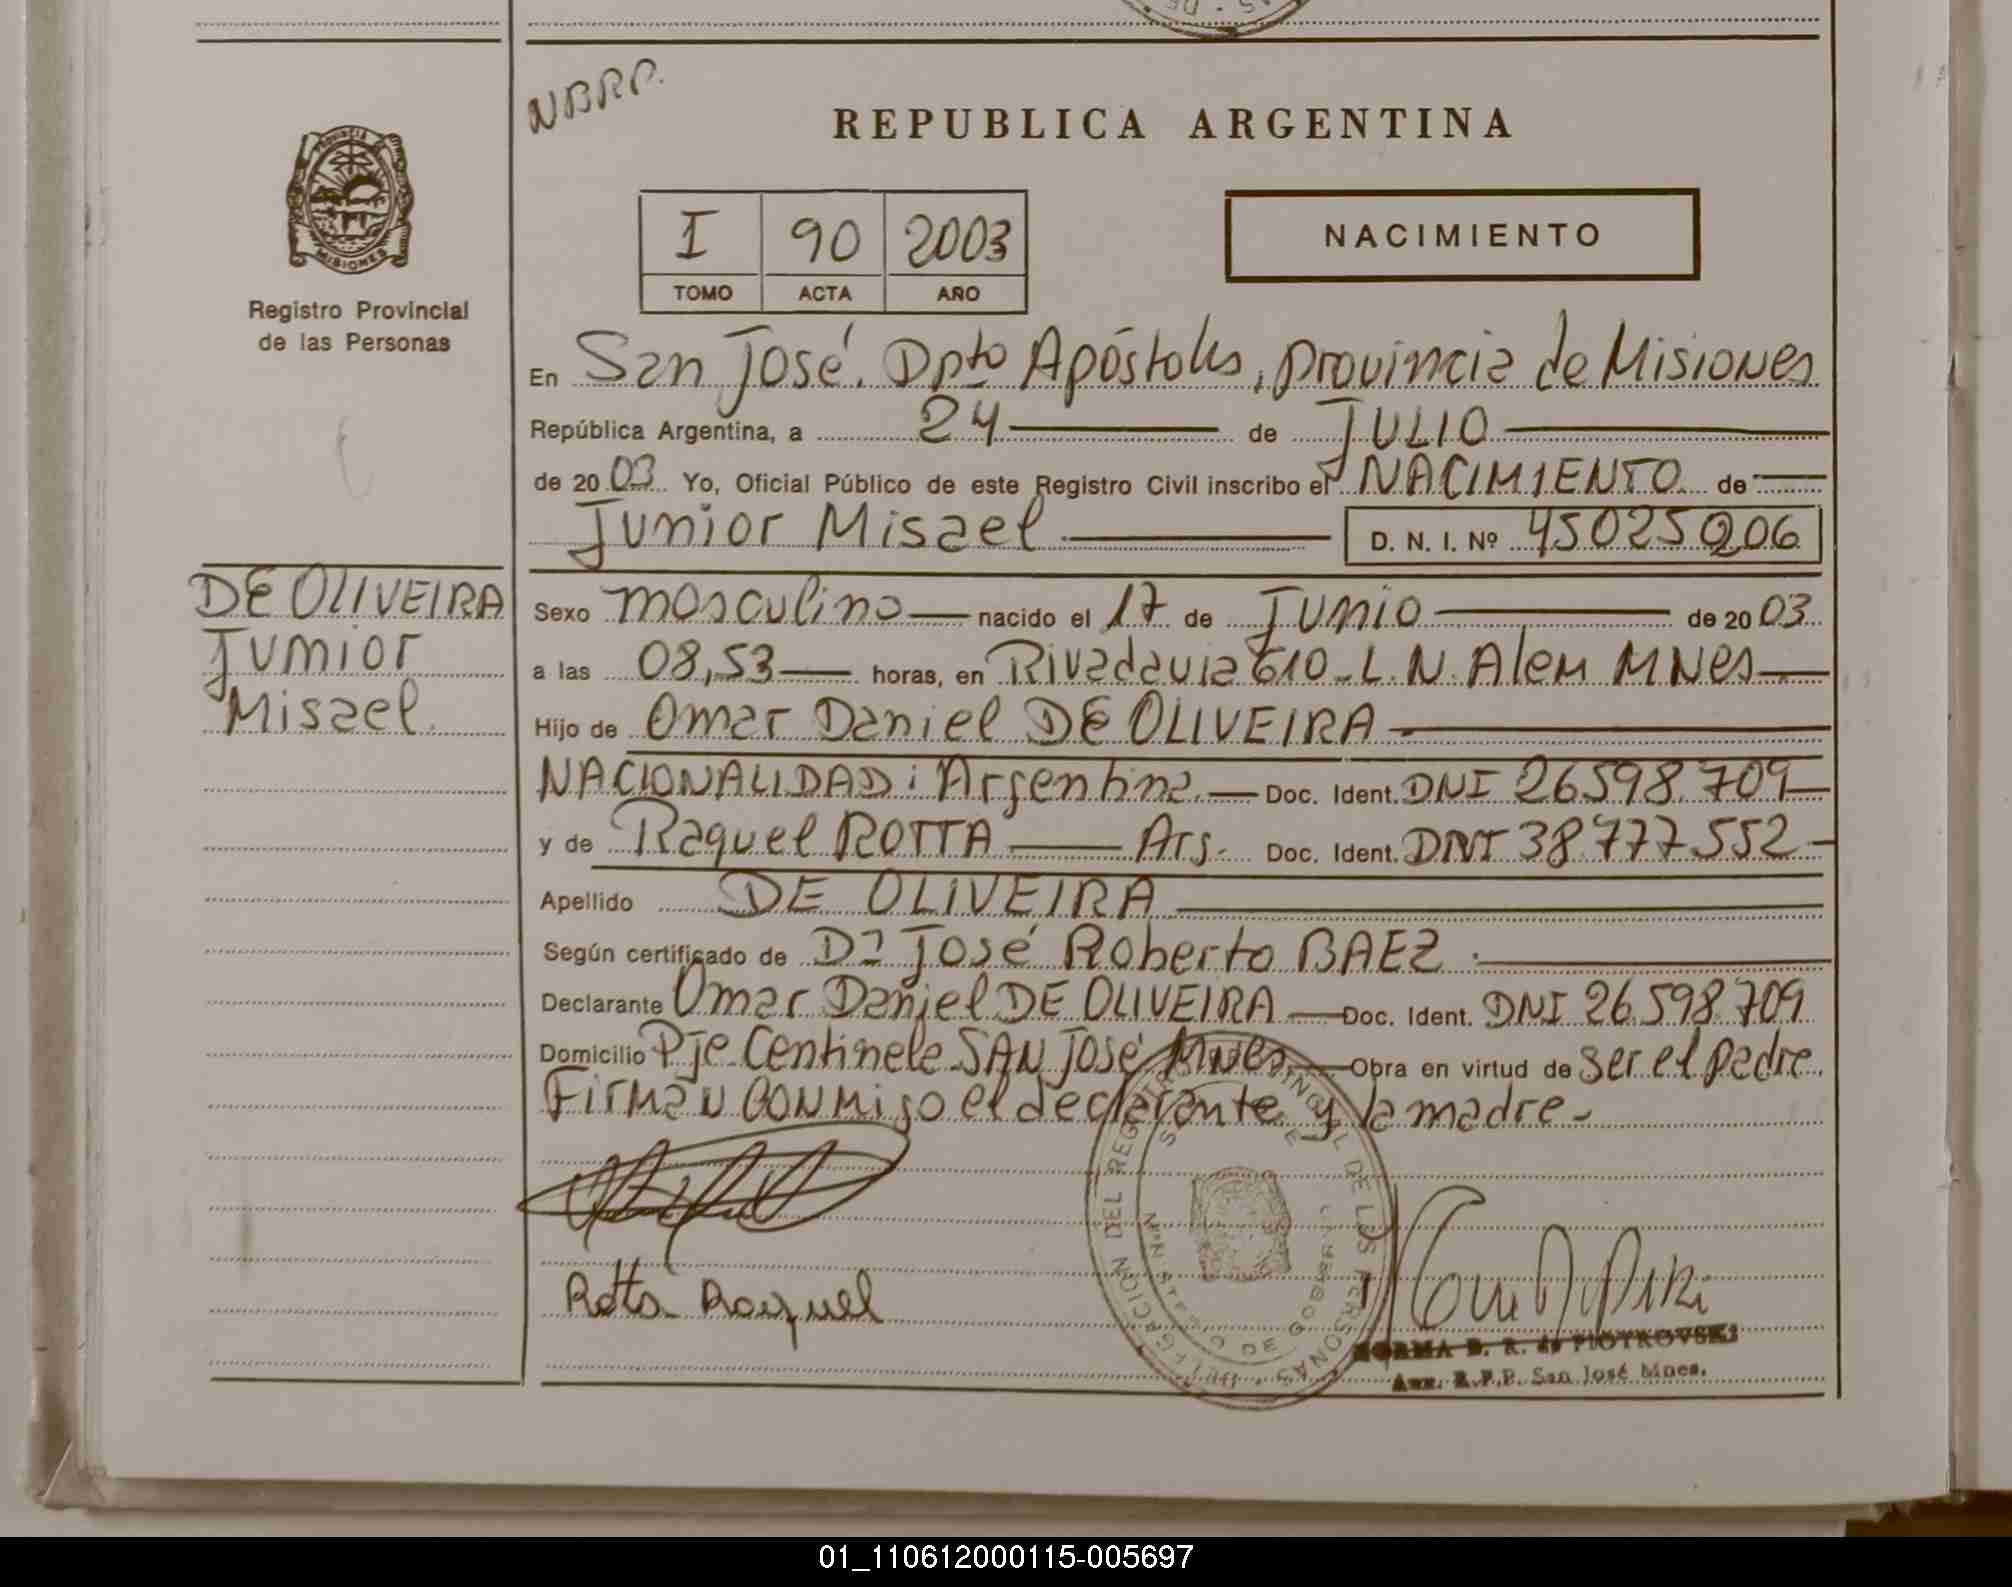 NBRP.
REPUBLICA ARGENTINA
PROVINCIA DE
MISIONES
Registro Provincial
de las Personas
I 90 2003
TOMO ACTA AÑO
NACIMIENTO
En San José. Dpto Apóstoles, provincia de Misiones
República Argentina, a 24 de JULIO
de 20 03 Yo, Oficial Público de este Registro Civil inscribo el NACIMIENTO de
Junior Misael D. N. I. Nº 45025206
DE OLIVEIRA
Junior
Misael.
Sexo masculino nacido el 17 de Junio de 20 03
a las 08,53 horas, en Rivadavia 610-L.N. Alem MNes
Hijo de Omar Daniel DE OLIVEIRA
NACIONALIDAD: Argentina. Doc. Ident. DNI 26.598.709
y de Raquel ROTTA Arg. Doc. Ident. DNI 38.777.552
Apellido DE OLIVEIRA
Según certificado de Dr José Roberto BAEZ.
Declarante Omar Daniel DE OLIVEIRA Doc. Ident. DNI 26.598.709
Domicilio Pje Centinela SAN José Mnes Obra en virtud de ser el padre.
Firman conmigo el declarante y la madre-
Rotta Raquel
NORMA B. R. de PIOTROVSKI
Aux. R.P.P. San José Mnes.
01_110612000115-005697